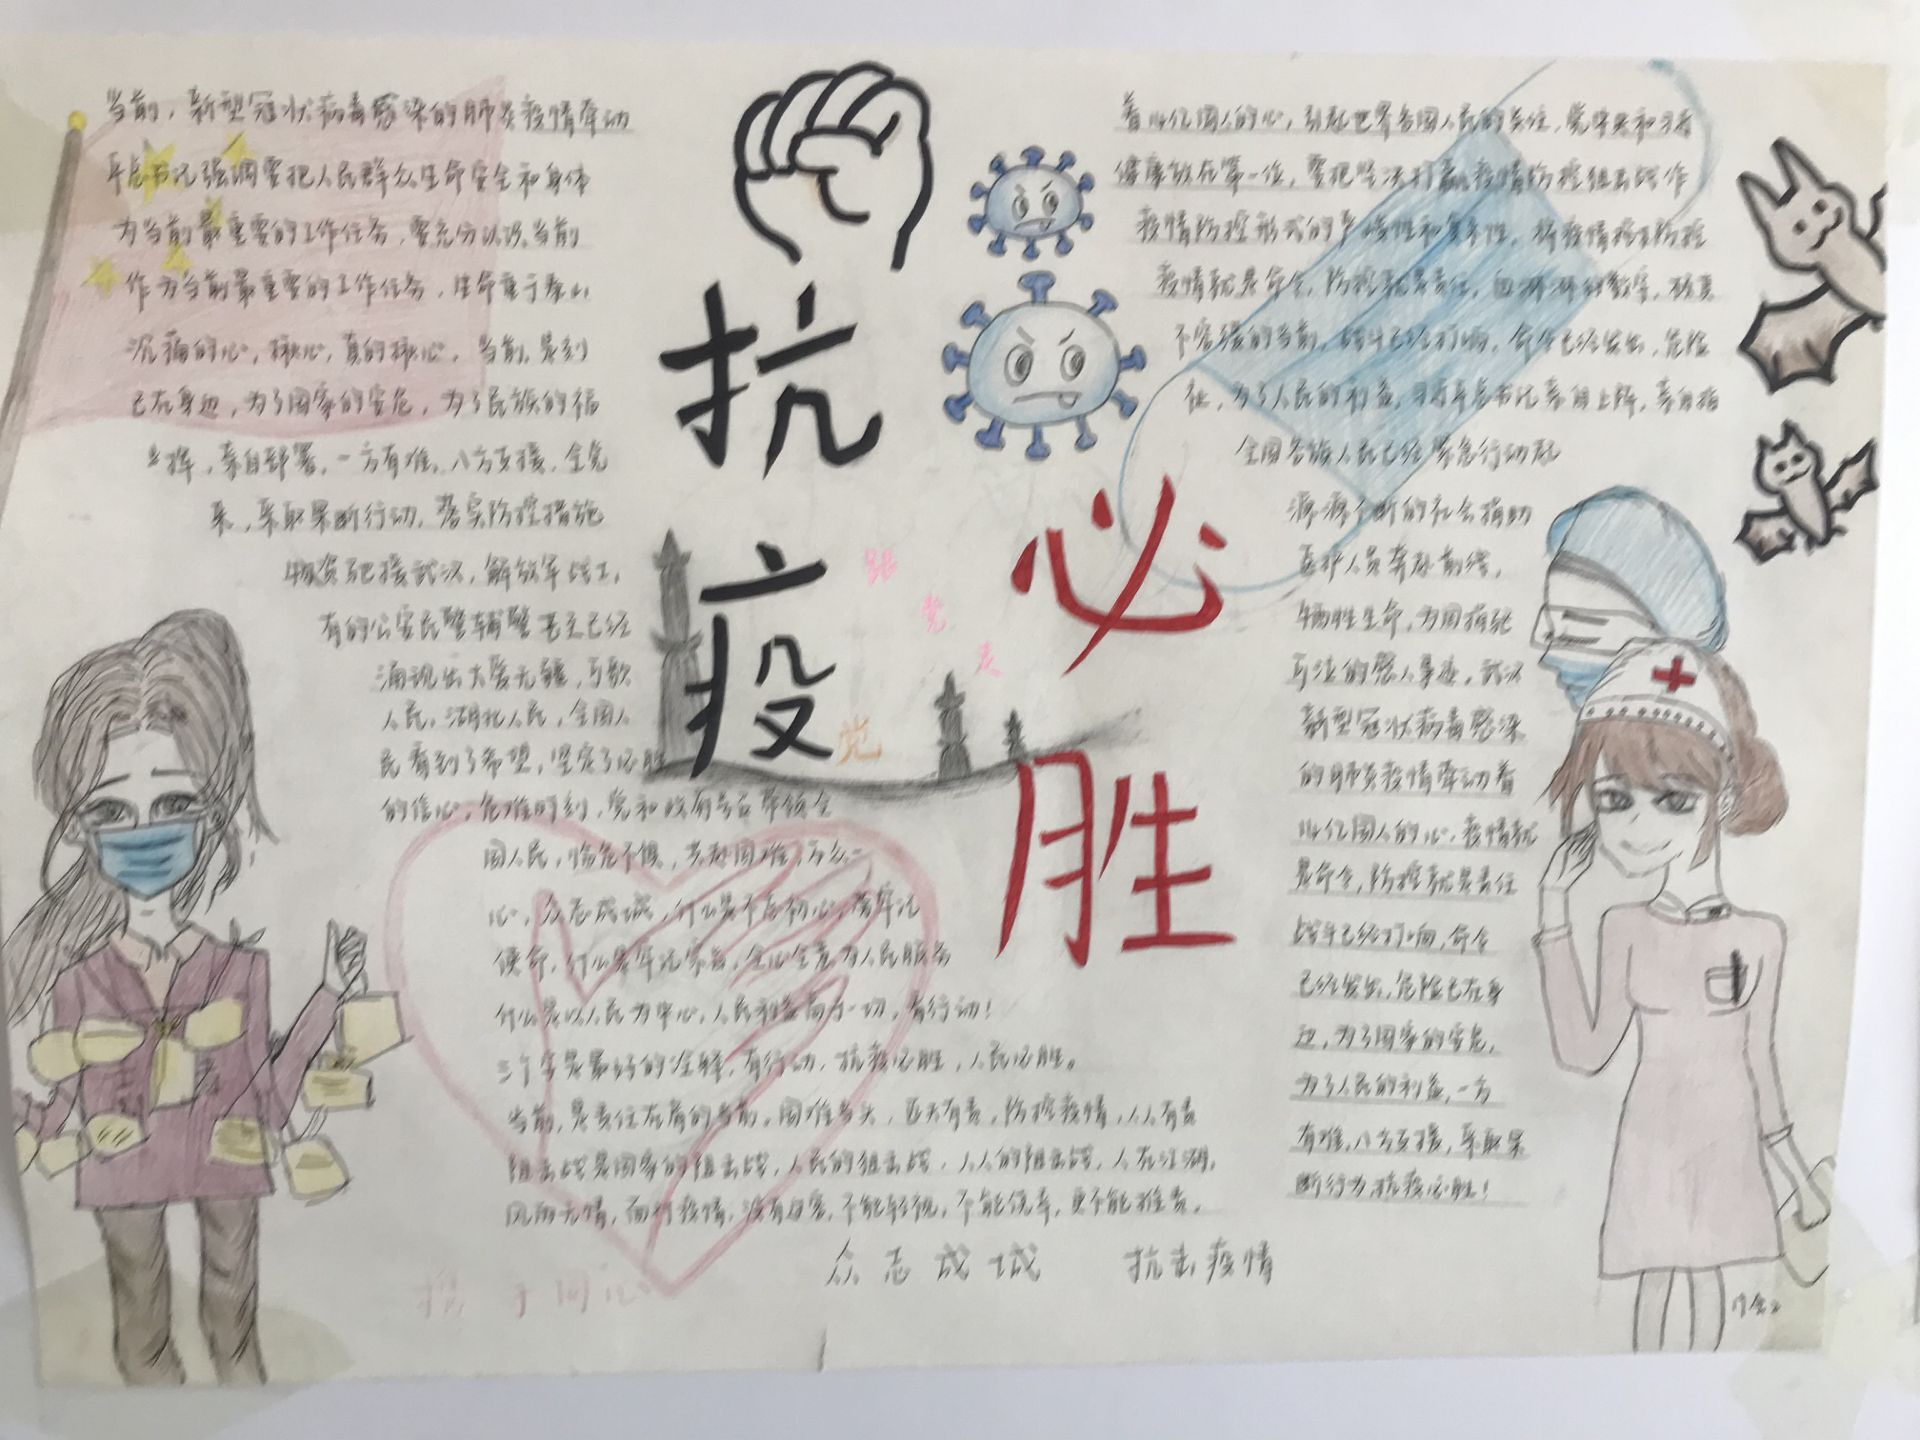 当前，新型冠状病毒感染的肺炎疫情牵动
着14亿国人的心，引起世界各国人民的关注，党中央和习近
平总书记强调要把人民群众生命安全和身体
健康放在第一位，要把坚决打赢疫情防控阻击战作
为当前最重要的工作任务，要充分认识当前
疫情防控形式的严峻性和复杂性，将疫情
作为当前最重要的工作任务，生命重于泰山
疫情就是命令，防控就是责任，
沉痛的心，揪心，真的揪心，当前，是刻
不容缓的当前，战斗已经打响，命令已经发出，危险
已在身边，为了国家的安危，为了民族的福
祉，为了人民的利益，习近平总书记亲自上阵，亲自指
挥，亲自部署，一方有难，八方支援，全党
全国各族人民已经紧急行动起
来，采取果断行动，落实防控措施
源源不断的社会捐助
物资驰援武汉，解放军战士，
医护人员奔赴前线，
有的公安民警辅警甚至已经
牺牲生命，为国捐躯
涌现出大爱无疆，可歌
可泣的感人事迹，武汉
人民，湖北人民，全国人
民看到了希望，坚定了必胜
的信心，危难时刻，党和政府号召带领全
国人民，临危不惧，共赴困难，万众一
心，众志成城，什么是不忘初心，
使命，什么是牢记宗旨，全心全意为人民服务
什么是以人民为中心，人民利益高于一切，有行动！
三个字是最好的诠释，有行动，抗疫必胜，人民必胜。
当前，是责任在肩的当前。国难当头，匹夫有责，防控疫情，人人有责
阻击战是国家的阻击战，人民的阻击战，人人的阻击战，人在江湖，
风雨无情，面对疫情，没有迫害，不能轻视，不能侥幸，更不能推责。
抗
疫
必
胜
跟
党
走
党
新型冠状病毒感染
的肺炎疫情牵动着
14亿国人的心，疫情就
是命令，防控就是责任
战斗已经打响，命令
已经发出，危险已在身
边，为了国家的安危，
为了人民的利益，一方
有难，八方支援，采取果
断行为，抗疫必胜！
众志成城 抗击疫情
携手同心